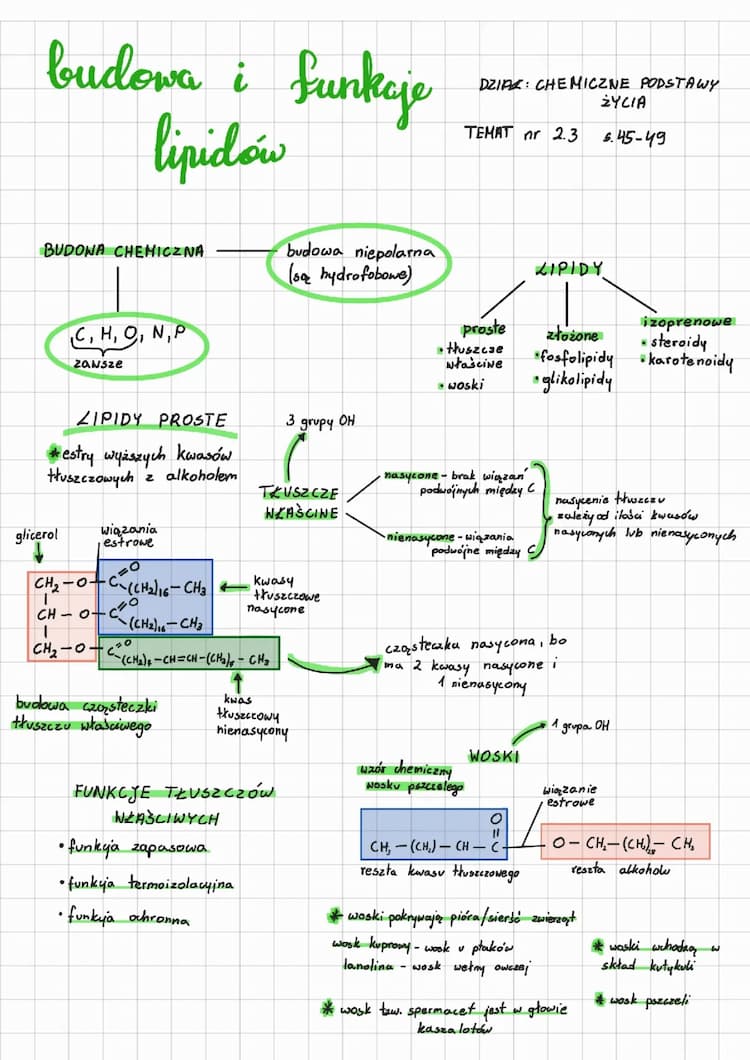 budowa i funkcje
lipidów
DZIAŁ: CHEMICZNE PODSTAWY
ŻYCIA
TEMAT nr 2.3 s. 45-49
BUDOWA CHEMICZNA
budowa niepolarna
(są hydrofobowe)
C, H, O, N, P
zawsze
LIPIDY
proste
• tłuszcze
właściwe
• woski
złożone
• fosfolipidy
• glikolipidy
izoprenowe
• steroidy
• karotenoidy
LIPIDY PROSTE
* estry wyższych kwasów
tłuszczowych z alkoholem
3 grupy OH
TŁUSZCZE
WŁAŚCIWE
nasycone - brak wiązań
podwójnych między C
nienasycone - wiązania
podwójne między C
nasycenie tłuszczu
zależy od ilości kwasów
nasyconych lub nienasyconych
glicerol
wiązania
estrowe
CH2 - O - C =O (CH2)16 - CH3
CH - O - C =O (CH2)16 - CH3
CH2 - O - C =O (CH2)7 - CH=CH - (CH2)7 - CH3
kwasy
tłuszczowe
nasycone
kwas
tłuszczowy
nienasycony
cząsteczka nasycona, bo
ma 2 kwasy nasycone i
1 nienasycony
budowa cząsteczki
tłuszczu właściwego
FUNKCJE TŁUSZCZÓW
WŁAŚCIWYCH
• funkcja zapasowa
• funkcja termoizolacyjna
• funkcja ochronna
WOSKI
1 grupa OH
wzór chemiczny
wosku pszczelego
wiązanie
estrowe
O
CH3 - (CH2) - CH - C
O - CH2 - (CH2) - CH3
reszta kwasu tłuszczowego
reszta alkoholu
* woski pokrywają pióra/sierść zwierząt
wosk kuprowy - wosk u ptaków
lanolina - wosk wełny owczej
* wosk tzw. spermacet jest w głowie
kaszalotów
* woski wchodzą w
skład kutykuli
* wosk pszczeli